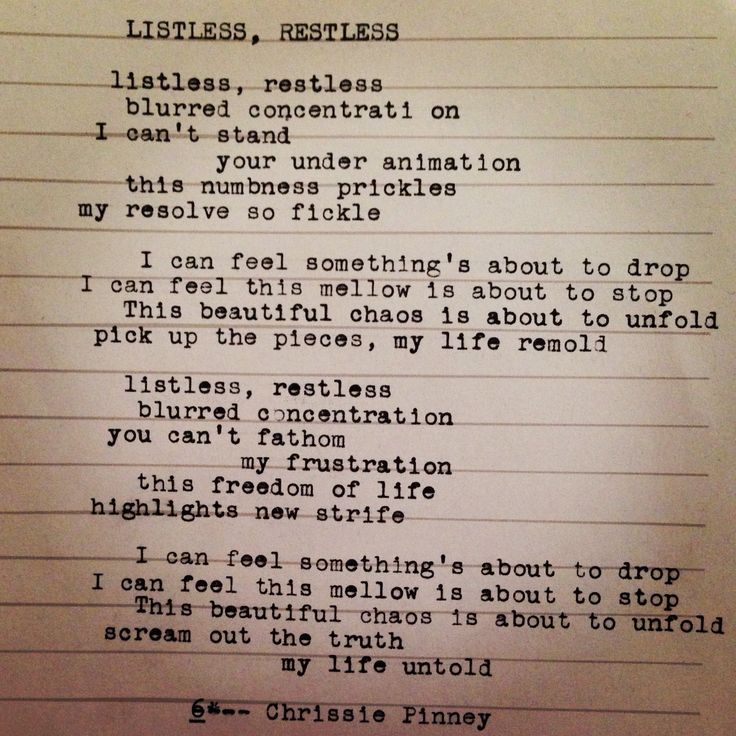 LISTLESS, RESTLESS
listless, restless
blurred concentrati on
I can't stand
your under animation
this numbness prickles
my resolve so fickle
I can feel something's about to drop
I can feel this mellow is about to stop
This beautiful chaos is about to unfold
pick up the pieces, my life remold
listless, restless
blurred concentration
you can't fathom
my frustration
this freedom of life
highlights new strife
I can feel something's about to drop
I can feel this mellow is about to stop
This beautiful chaos is about to unfold
scream out the truth
my life untold
6*-- Chrissie Pinney